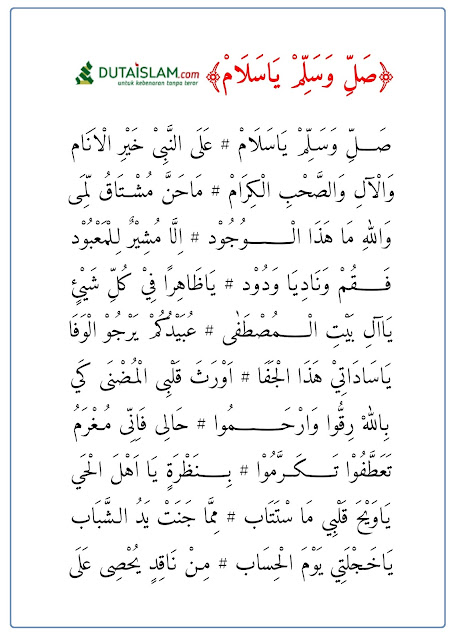 DUTAISLAM.com
untuk kebenaran tanpa teror
﴿صَلِّ وَسَلِّمْ يَاسَلَامْ﴾
صَــلِّ وَسَلِّمْ يَاسَلَامْ # عَلَى النَّبِيْ خَيْرِ الْاَنَام
وَالْآلِ وَالصَّحْبِ الْكِرَامْ # مَاحَنَّ مُشْتَاقُ لِّمَى
وَاللهِ مَا هَذَا الْــــــوُجُوْد # اِلَّا مُشِيْرٌ لِلْمَعْبُوْد
فَــــقُمْ وَنَادِيَا وَدُوْد # يَاظَاهِرًا فِيْ كُلِّ شَيْئٍ
يَاآلِ بَيْتِ الْــــمُصْطَفٰى # عُبَيْدُكُمْ يَرْجُوْ الْوَفَا
يَاسَادَاتِيْ هَذَا الْجَفَا # اَوْرَثَ قَلْبِي الْمُضْنَى كَي
بِاللهْ رِقُّوا وَارْحَــــــمُوا # حَالِى فَاِنِّى مُغْرَمُ
تَعَطَّفُوْا تَــــكَــرَّمُوْا # بِـــنَظْرَةٍ يَا اَهْلَ الْحَي
يَاوَيْحَ قَلْبِي مَا سْتَتَاب # مِمَّا جَنَتْ يَدُ الشَّبَاب
يَاخَجْلَتِي يَوْمَ الْحِسَاب # مِنْ نَاقِدٍ يُحْصِى عَلَى